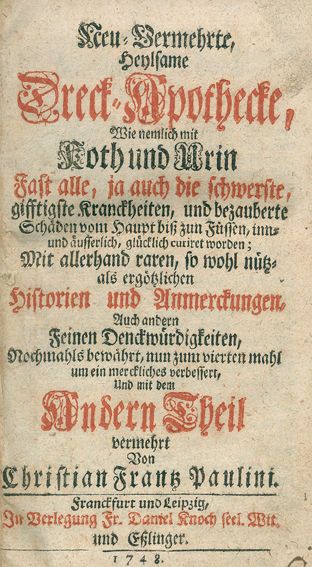 Neu-Vermehrte,
Heylsame
Dreck-Apothecke,
Wie nemlich mit
Koth und Urin
Fast alle, ja auch die schwerste,
gifftigste Kranckheiten, und bezauberte
Schäden vom Haupt biß zum Füssen, inn-
und äusserlich, glücklich curiret worden;
Mit allerhand raren, so wohl nütz-
als ergötzlichen
Historien und Anmerckungen,
Auch andern
Feinen Denckwürdigkeiten,
Nochmahls bewährt, nun zum vierten mahl
um ein merckliches verbessert,
Und mit dem
Andern Theil
vermehrt
Von
Christian Frantz Paulini.
Franckfurt und Leipzig,
In Verlegung Fr. Daniel Knoch seel. Wit.
und Eßlinger.
1748.